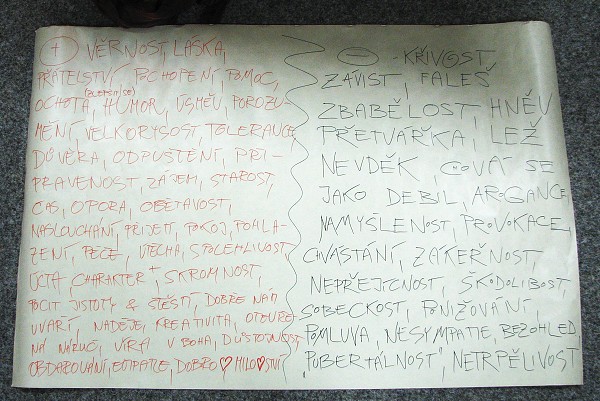 + VĚRNOST, LÁSKA,
PŘÁTELSTVÍ, POCHOPENÍ, POMOC,
OCHOTA (ZLEPŠIT SE), HUMOR, ÚSMĚV, POROZU-
MĚNÍ, VELKORYSOST, TOLERANCE,
DŮVĚRA, ODPUŠTĚNÍ, PŘI-
PRAVENOST, ZÁJEM, STAROST,
ČAS, OPORA, OBĚTAVOST,
NASLOUCHÁNÍ, PŘIJETÍ, POKOJ, POHLA-
ZENÍ, PÉČE, ÚTĚCHA, SPOLEHLIVOST,
ÚCTA, CHARAKTER+, SKROMNOST,
POCIT JISTOTY & ŠTĚSTÍ, DOBŘE NÁM
UVAŘÍ, NADĚJE, KREATIVITA, OTEVŘE-
NÁ NÁRUČ, VÍRA V BOHA, DŮSTOJNOST
OBDAROVÁNÍ, EMPATIE, DOBRO ♡ MILO♥STVÍ
- - KŘIVOST,
ZÁVIST, FALEŠ
ZBABĚLOST, HNĚV
PŘETVÁŘKA, LEŽ
NEVDĚK, CHOVAT SE
JAKO DEBIL, AROGANCE,
NAMYŠLENOST, PROVOKACE,
CHVÁSTÁNÍ, ZÁKEŘNOST,
NEPŘEJÍCNOST, ŠKODOLIBOST,
SOBECKOST, PONIŽOVÁNÍ,
POMLUVA, NESYMPATIE, BEZOHLED,
"PUBERTÁLNOST", NETRPĚLIVOST